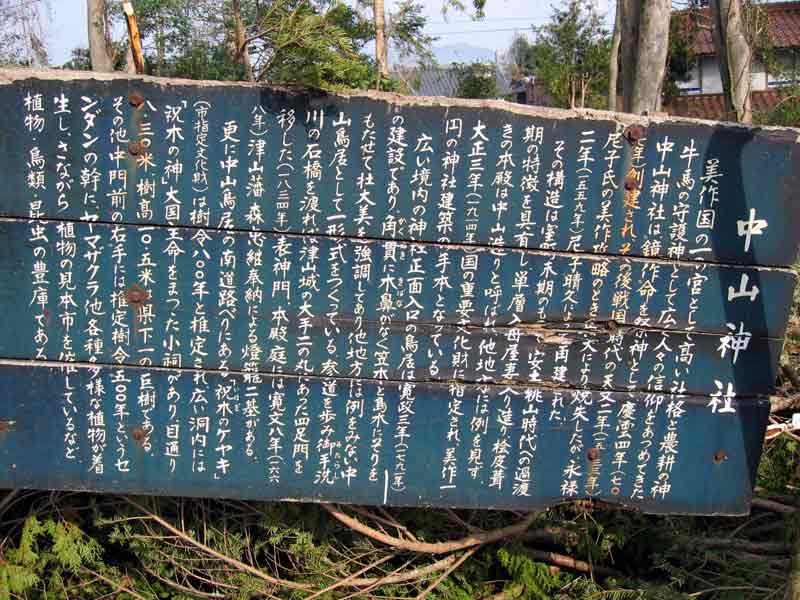 中山神社
美作国の一の宮として高い社格と農耕の神
牛馬の守護神として広く人々の信仰をあつめてきた
中山神社は鏡作命を祭神とし慶雲四年(七〇
七年)創建され、その後戦国時代の天文二年(一五三三年)
尼子氏の美作攻略のとき兵火により焼失したが永禄
二年(一五五九年)尼子晴久によって再建された
その構造は室町末期のもので安土桃山時代への過渡
期の特徴を具有し単層入母屋妻入造り桧皮葺
きの本殿は中山造りと呼ばれ他地方には例を見ず、
大正三年(一九一四年)国の重要文化財に指定され美作一
円の神社建築の手本となっている
広い境内の神社正面入口の鳥居は寛政三年(一七九一年)
の建設であり角貫に木鼻がなく笠木と島木にそりを
もたせて壮大美を強調してあり他地方には例をみない中
山鳥居として一形式をつくっている 参道を歩み御手洗
川の石橋を渡れば津山城の大手二の丸にあった四足門を
移した(一八三四年)表神門、本殿庭には寛文八年(一六六
八年)津山藩 森忠維奉納による燈籠二基がある
更に中山鳥居の南道路べりにある「祝木のケヤキ」
(市指定文化財)は樹令八〇〇年と推定され広い洞内には
「祝木の神」大国主命をまつった小祠があり目通り
八・三〇米、樹高一〇・五米、県下一の巨樹である
その他中門前の右手には推定樹令五〇〇年というセ
ンダンの幹に、ヤマザクラ他各種多様な植物が着
生し、さながら、植物の見本市を催しているなど
植物、鳥類、昆虫の豊庫である